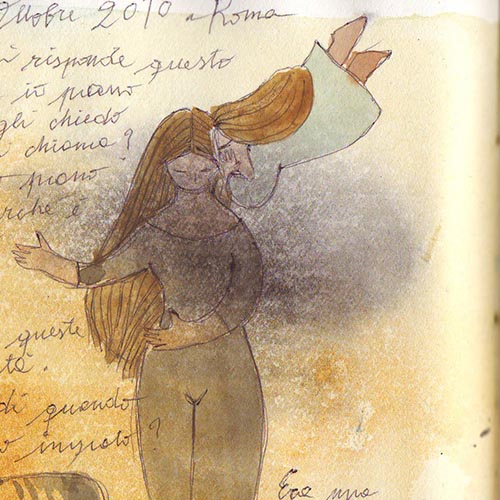 Ottobre 2010 a Roma
risponde questo
io piano
gli chiedo
chiama?
piano
è
queste
quando
inviato?
Era una